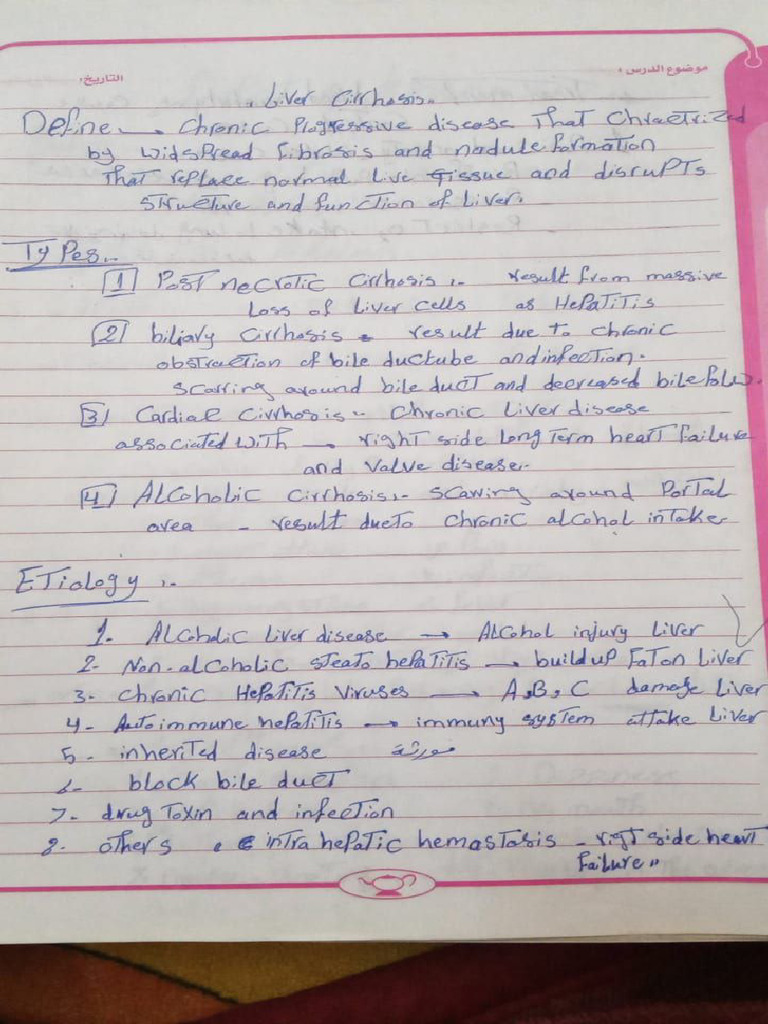 موضوع الدرس :
التاريخ:
Liver Cirrhosis.
Define → Chronic Progressive disease That Chractrized
by widspread Fibrosis and nodule formation
That replace normal Live tissue and disrupts
structure and function of Liver.
Types..
1 Post necrotic Cirrhosis :- result from massive
Loss of Liver cells as HePaTiTis
2 biliary Cirrhosis - result due to chronic
obstraction of bile ductube and infection.
scarring around bile duct and decreased bile folw.
3 Cardiac Cirrhosis - Chronic Liver disease
associated with → right side long Term heart Failure
and Valve disease.
4 Alcoholic Cirrhosis :- scarring around Portal
area - result due to chronic alcohol intake
Etiology :-
1- Alcoholic Liver disease → Alcohol injury Liver
2- Non-alcoholic steato hepatitis → buildup Fat on Liver
3- Chronic Hepatitis Viruses → A, B, C damage Liver
4- Autoimmune hepatitis → immuny system attake Liver
5- inherited disease مورثة
6- block bile duct
7- drug Toxin and infection
8- others intra hepatic hemostasis - right side heart
Failure "